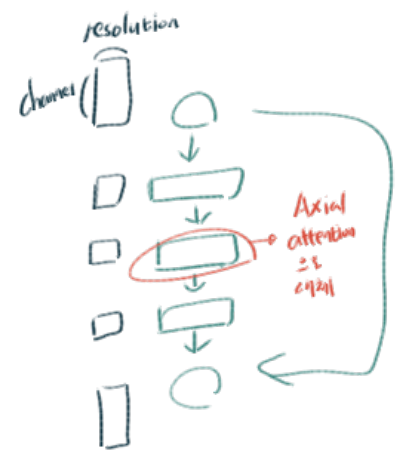 resolution
channel
Axial
attention
으로
대체